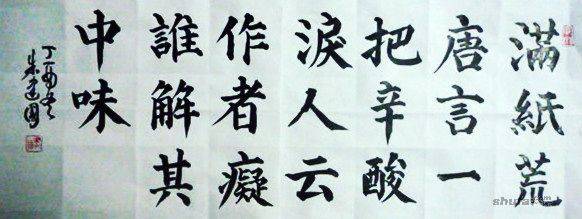 滿紙荒
唐言一
把辛酸
淚人云
作者癡
誰解其
中味
丁酉
朱建國